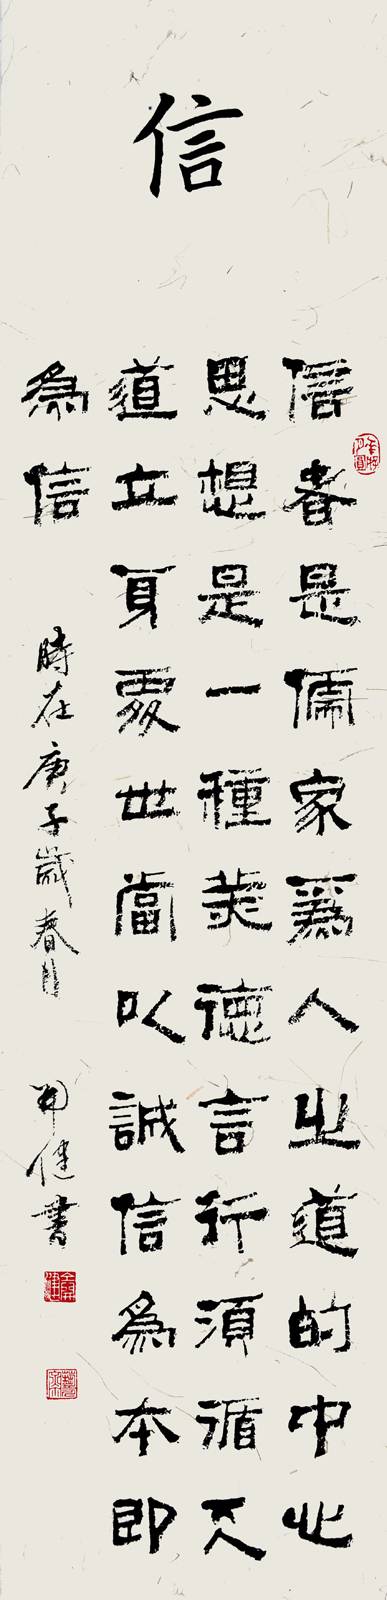 信
信者是儒家爲人之道的中心
思想是一種美德言行須循天
道立身處世當以誠信為本即
為信
時在庚子歲春月
健書